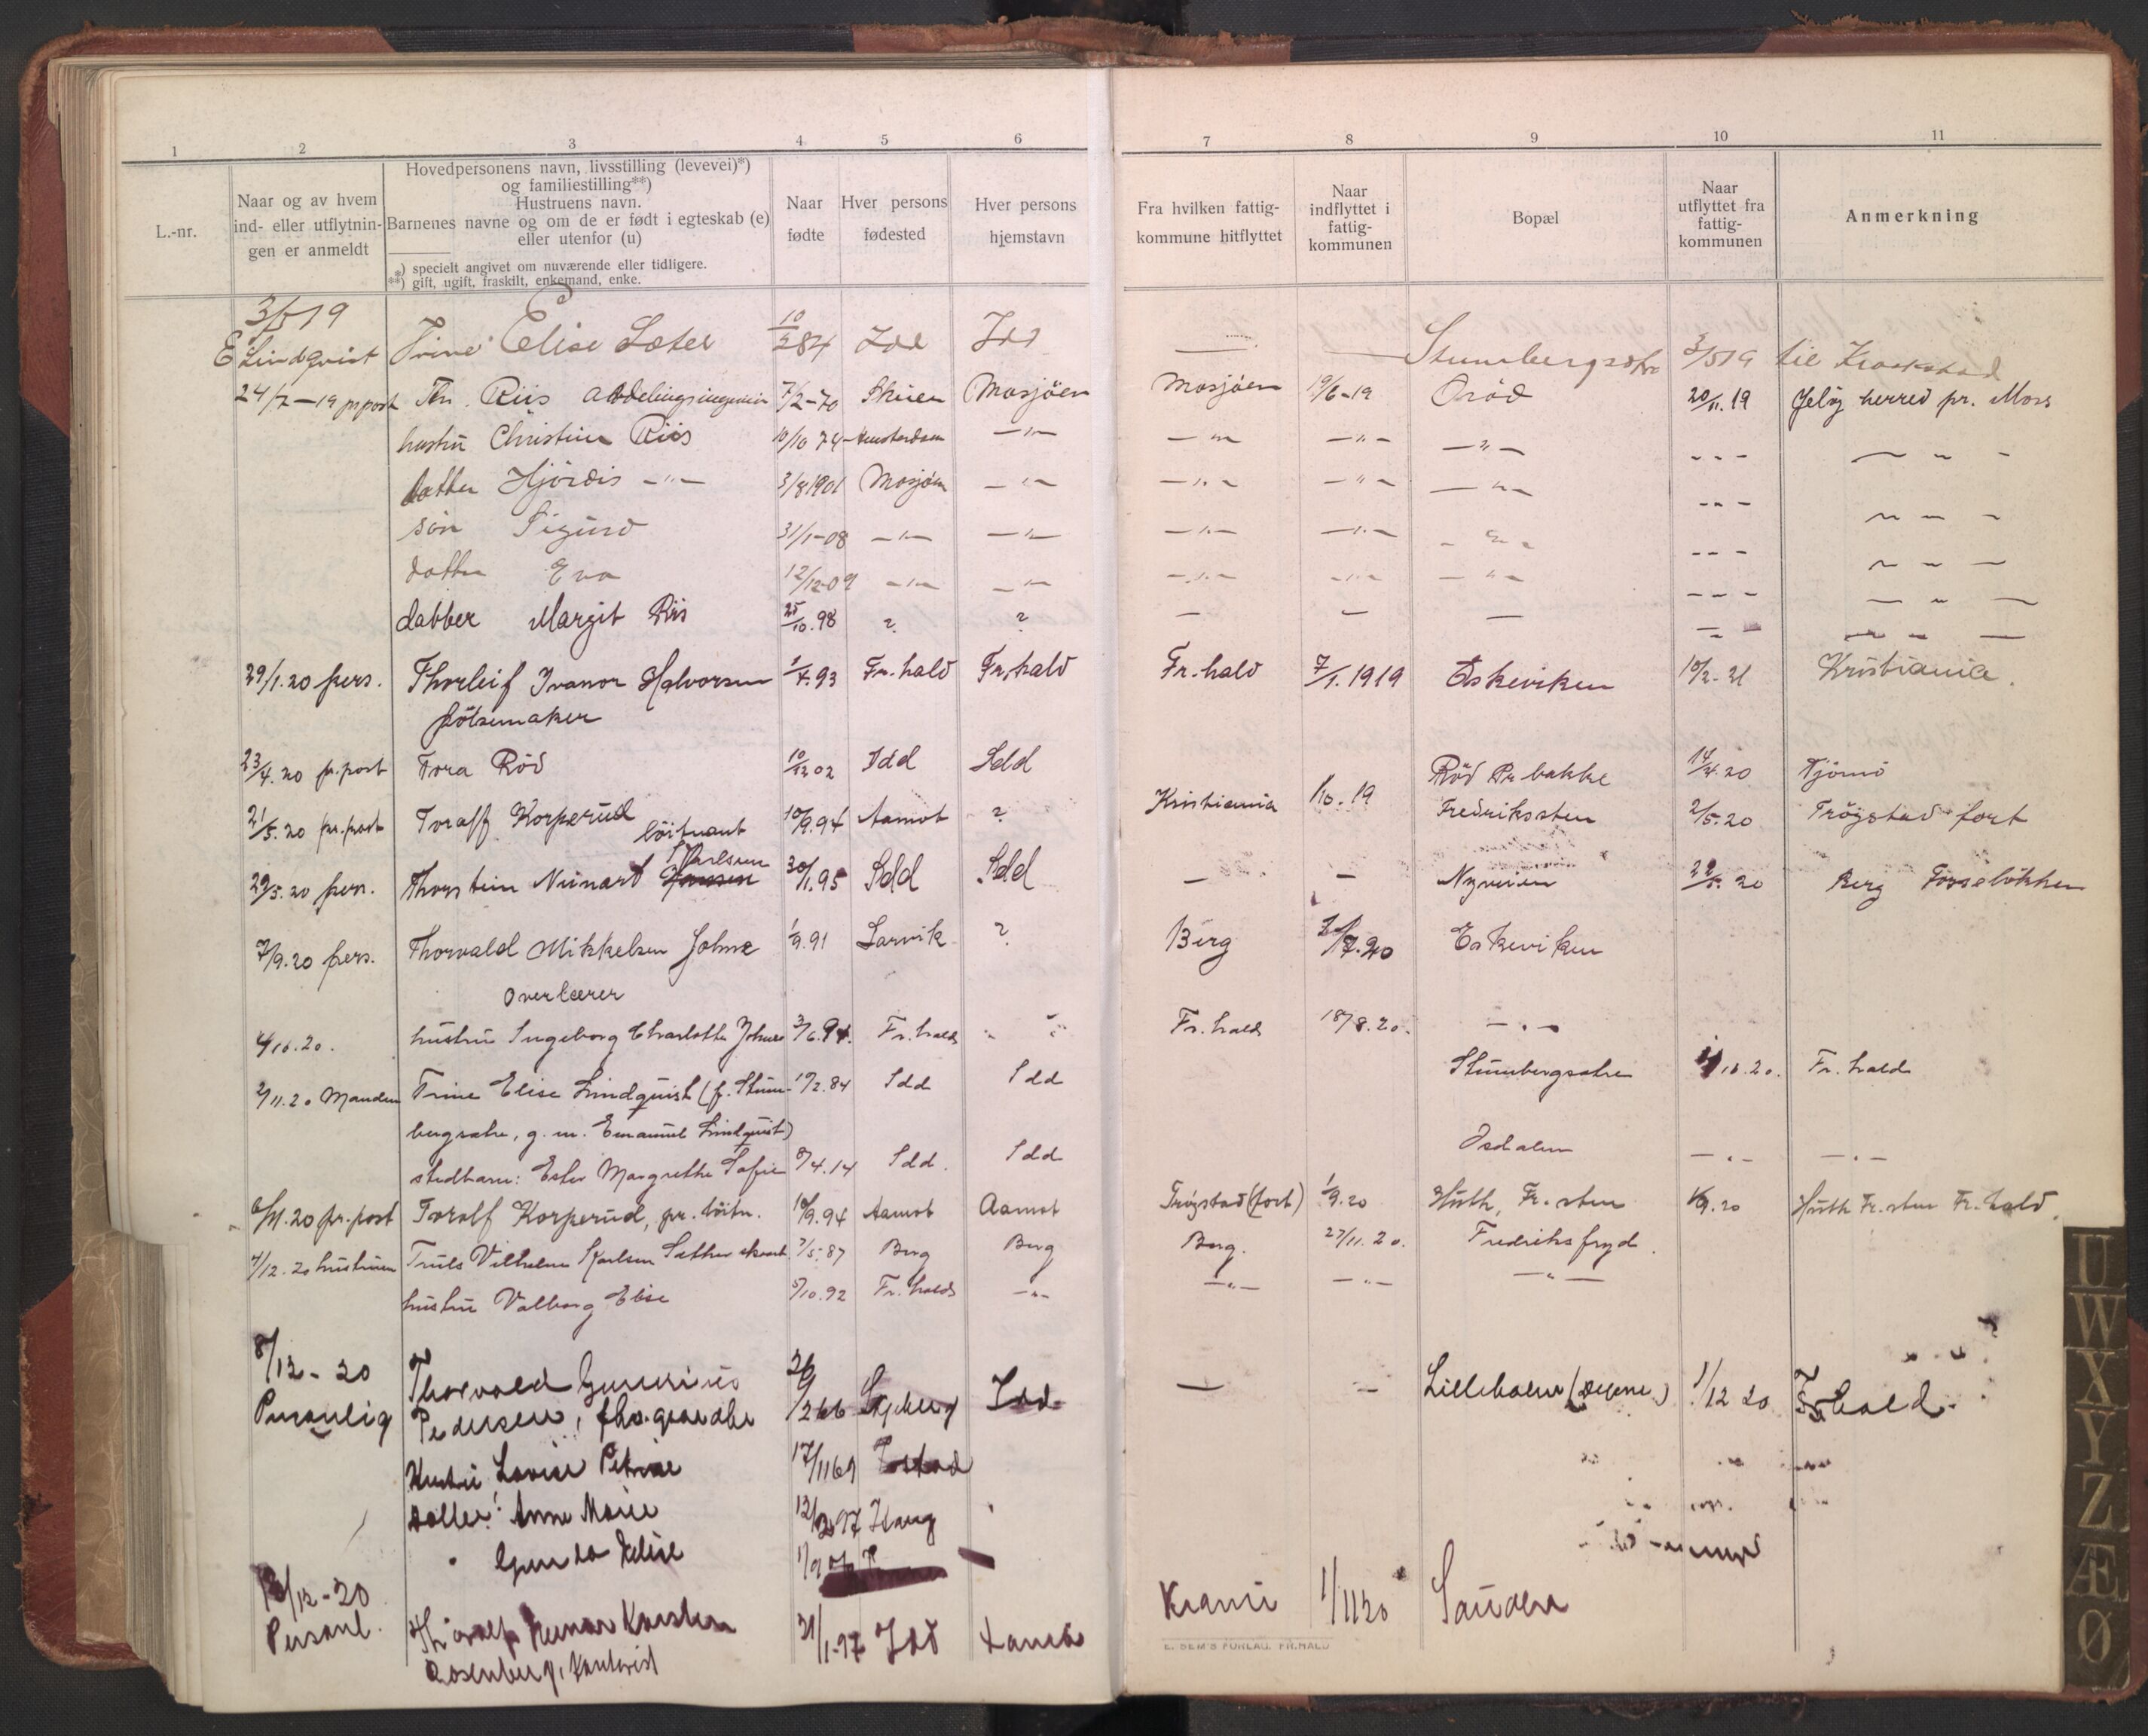 1 2 3 4 5 6 7 8 9 10 11
L.-nr.
Naar og av hvem
ind- eller utflytnin-
gen er anmeldt
Hovedpersonens navn, livsstilling (levevei)*)
og familiestilling**)
Hustruens navn.
Barnenes navne og om de er født i egteskab (e)
eller utenfor (u)
*) specielt angivet om nuværende eller tidligere.
**) gift, ugift, fraskilt, enkemand, enke.
Naar
fødte
Hver persons
fødested
Hver persons
hjemstavn
Fra hvilken fattig-
kommune hitflyttet
Naar
indflyttet i
fattig-
kommunen
Bopæl
Naar
utflyttet fra
fattig-
kommunen
Anmerkning
3/5 19
E Lindqvist Trine Elise Sæter 10/2 84 Idd Idd — — Stumbergsætre 3/5 19 til Kraakstad
24/7-19 pr post Th. Riis avdelingsingeniør 7/2-70 Skien Mosjøen Mosjøen 19/6-19 Orød 20/11.19 Jeløy herred pr. Moss
hustru Christine Riis 10/10 74 Amsterdam —"— —"— —"— —"— - - - — " -
datter Hjørdis —"— 3/8 1901 Mosjøen —"— —"— —"— —"— - - - — " -
søn Sigurd 31/1-08 —"— —"— —"— —"— —"— - - - — " —
datter Eva 12/12-09 —"— —"— —"— —"— —"— - - - — " —
datter Margit Riis 25/10.98 ? ? — — — — " — — " —
29/1.20 pers. Thorleif Ivanor Halvorsen 1/4.93 Fr.hald Fr.hald Fr.hald 7/1.1919 Eskeviken 10/2-21 Kristiania.
pølsemaker
23/4.20 pr.post Tora Rød 10/12 02 Idd Idd Rød Pr bakke 14/4.20 Tjømø
21/5.20 pr.post Toralf Korperud 10/9.94 Aamot ? Kristiania 1/10.19 Fredriksten 2/5.20 Trøgstad fort
løitnant
Karlsen
29/5.20 pers. Thorstein Nunart Hansen 30/1.95 Idd Idd — — Nyveien 29/5.20 Berg Torseløkken
7/9.20 pers. Thorvald Mikkelsen Johne 1/9.91 Larvik ? Berg 20/7.20 Eskeviken
overlærer
4/10.20. hustru Ingeborg Charlotte Johne 3/6.94. Fr.hald " " Fr.hald 18/8.20. — " —
2/11.20 Manden Trine Elise Lindquist (f. Stum- 10/2.84 Idd Idd Stumbergsætre 1/10.20. Fr.hald
bergsætre, g. m. Emanuel Lindquist)
stedbarn: Ester Margrethe Sofie 8/4.14 Idd. Idd Isdalen —"— —"—
6/11.20 pr.post Toralf Korperud, pr. løitn. 10/9.94 Aamot Aamot Trøgstad (fort) 1/9.20 Huth, Fr.sten 1/9.20 Huth Fr.sten Fr.hald.
4/12.20 hustruen Truls Vilhelm Karlsen Sæther 7/5.87 Berg Berg Berg. 27/11.20. Fredriksfryd.
hustru Valborg Elise 5/10.92 Fr.hald —"— —"— —"— —"—
8/12-20
Personlig Thorvald Gunerius 26/2 66 Skjeberg Idd — — Lilleholen 1/12 20 Fr.hald.
Pedersen,
Hustru Lovise Petrine 17/11 69
Datter: Anne Marie Haug
" Gunda Helise
13/12-20
Personl. Thoralf Reinar Karsten 21/1-97 Idd Krania 1/11 20 Sauøen
Rosenberg, Kontorist
E. SEM'S FORLAG. FR.HALD
U
W
X
Y
Z
Æ
Ø